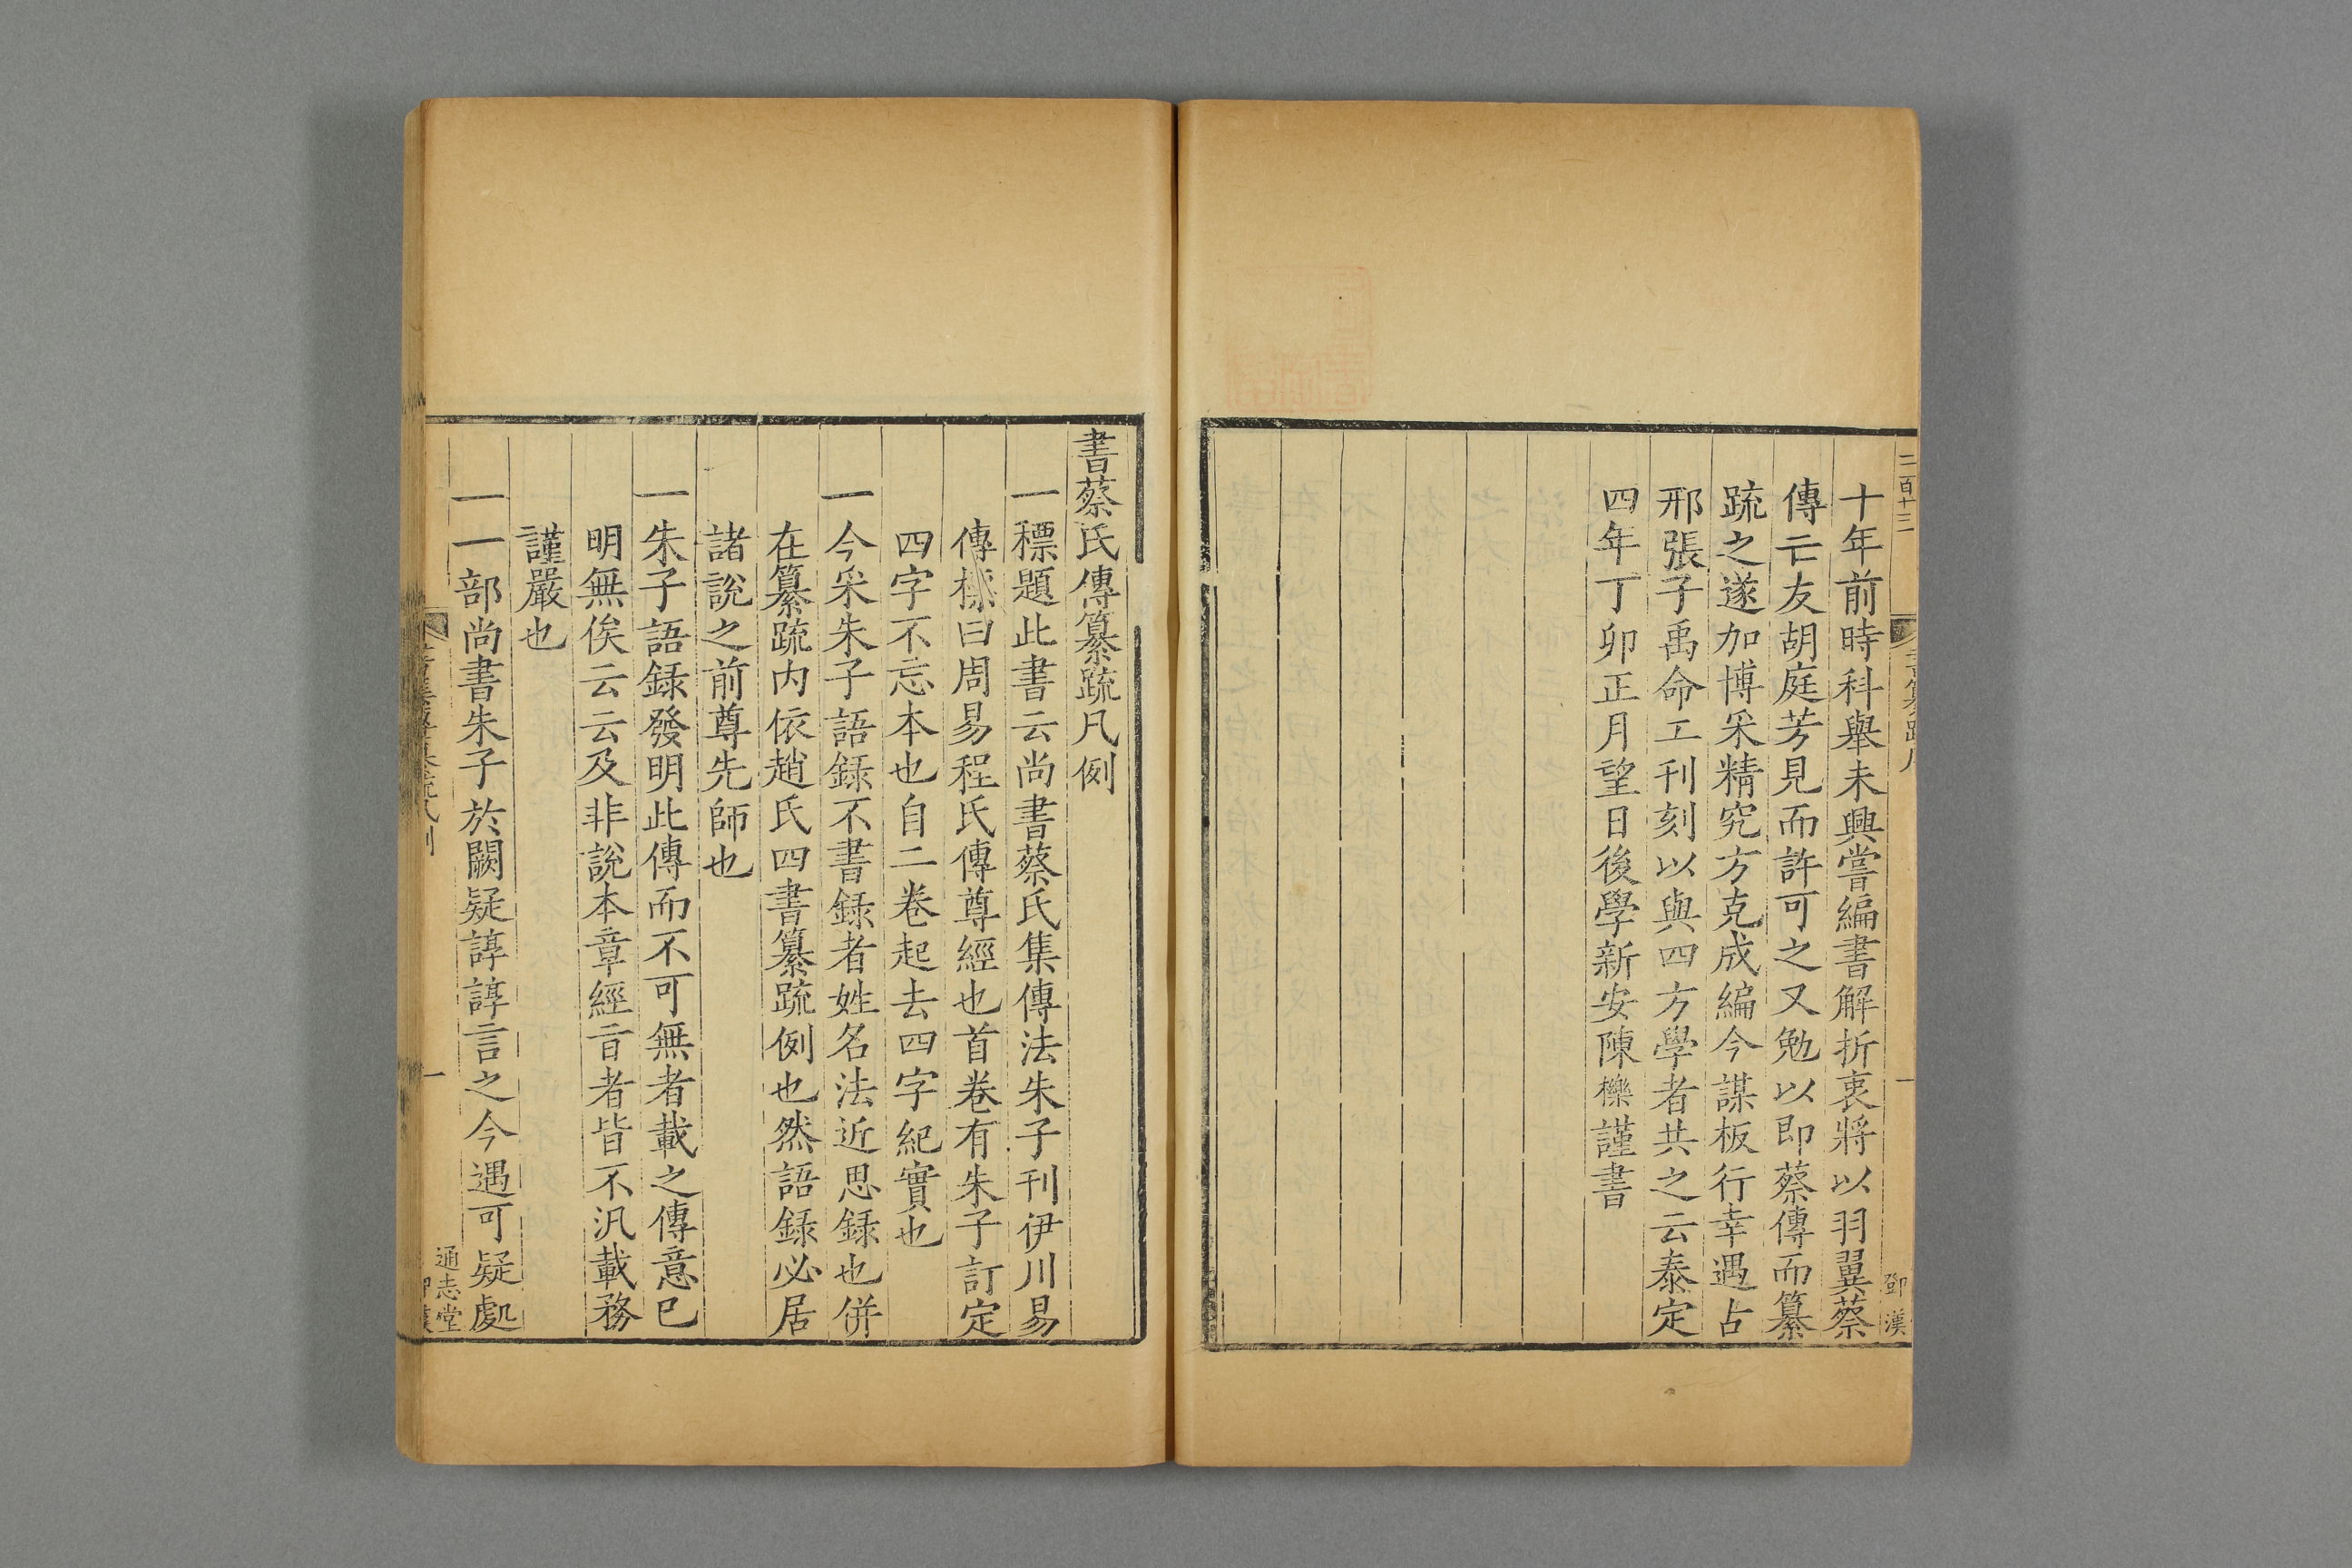 二百十三
鄧漢
十年前時科舉未興嘗編書解折衷將以羽翼蔡
傳亡友胡庭芳見而許可之又勉以即蔡傳而纂
疏之遂加博采精究方克成編今謀板行幸遇占
邢張子禹命工刊刻以與四方學者共之云泰定
四年丁卯正月望日後學新安陳櫟謹書
書蔡氏傳纂疏凡例
一標題此書云尚書蔡氏集傳法朱子刊伊川易
傳標曰周易程氏傳尊經也首卷有朱子訂定
四字不忘本也自二卷起去四字紀實也
一今采朱子語錄不書錄者姓名法近思錄也併
在纂疏內依趙氏四書纂疏例也然語錄必居
諸說之前尊先師也
一朱子語錄發明此傳而不可無者載之傳意已
明無俟云云及非說本章經旨者皆不汎載務
謹嚴也
一一部尚書朱子於闕疑諄諄言之今遇可疑處
一
通志堂